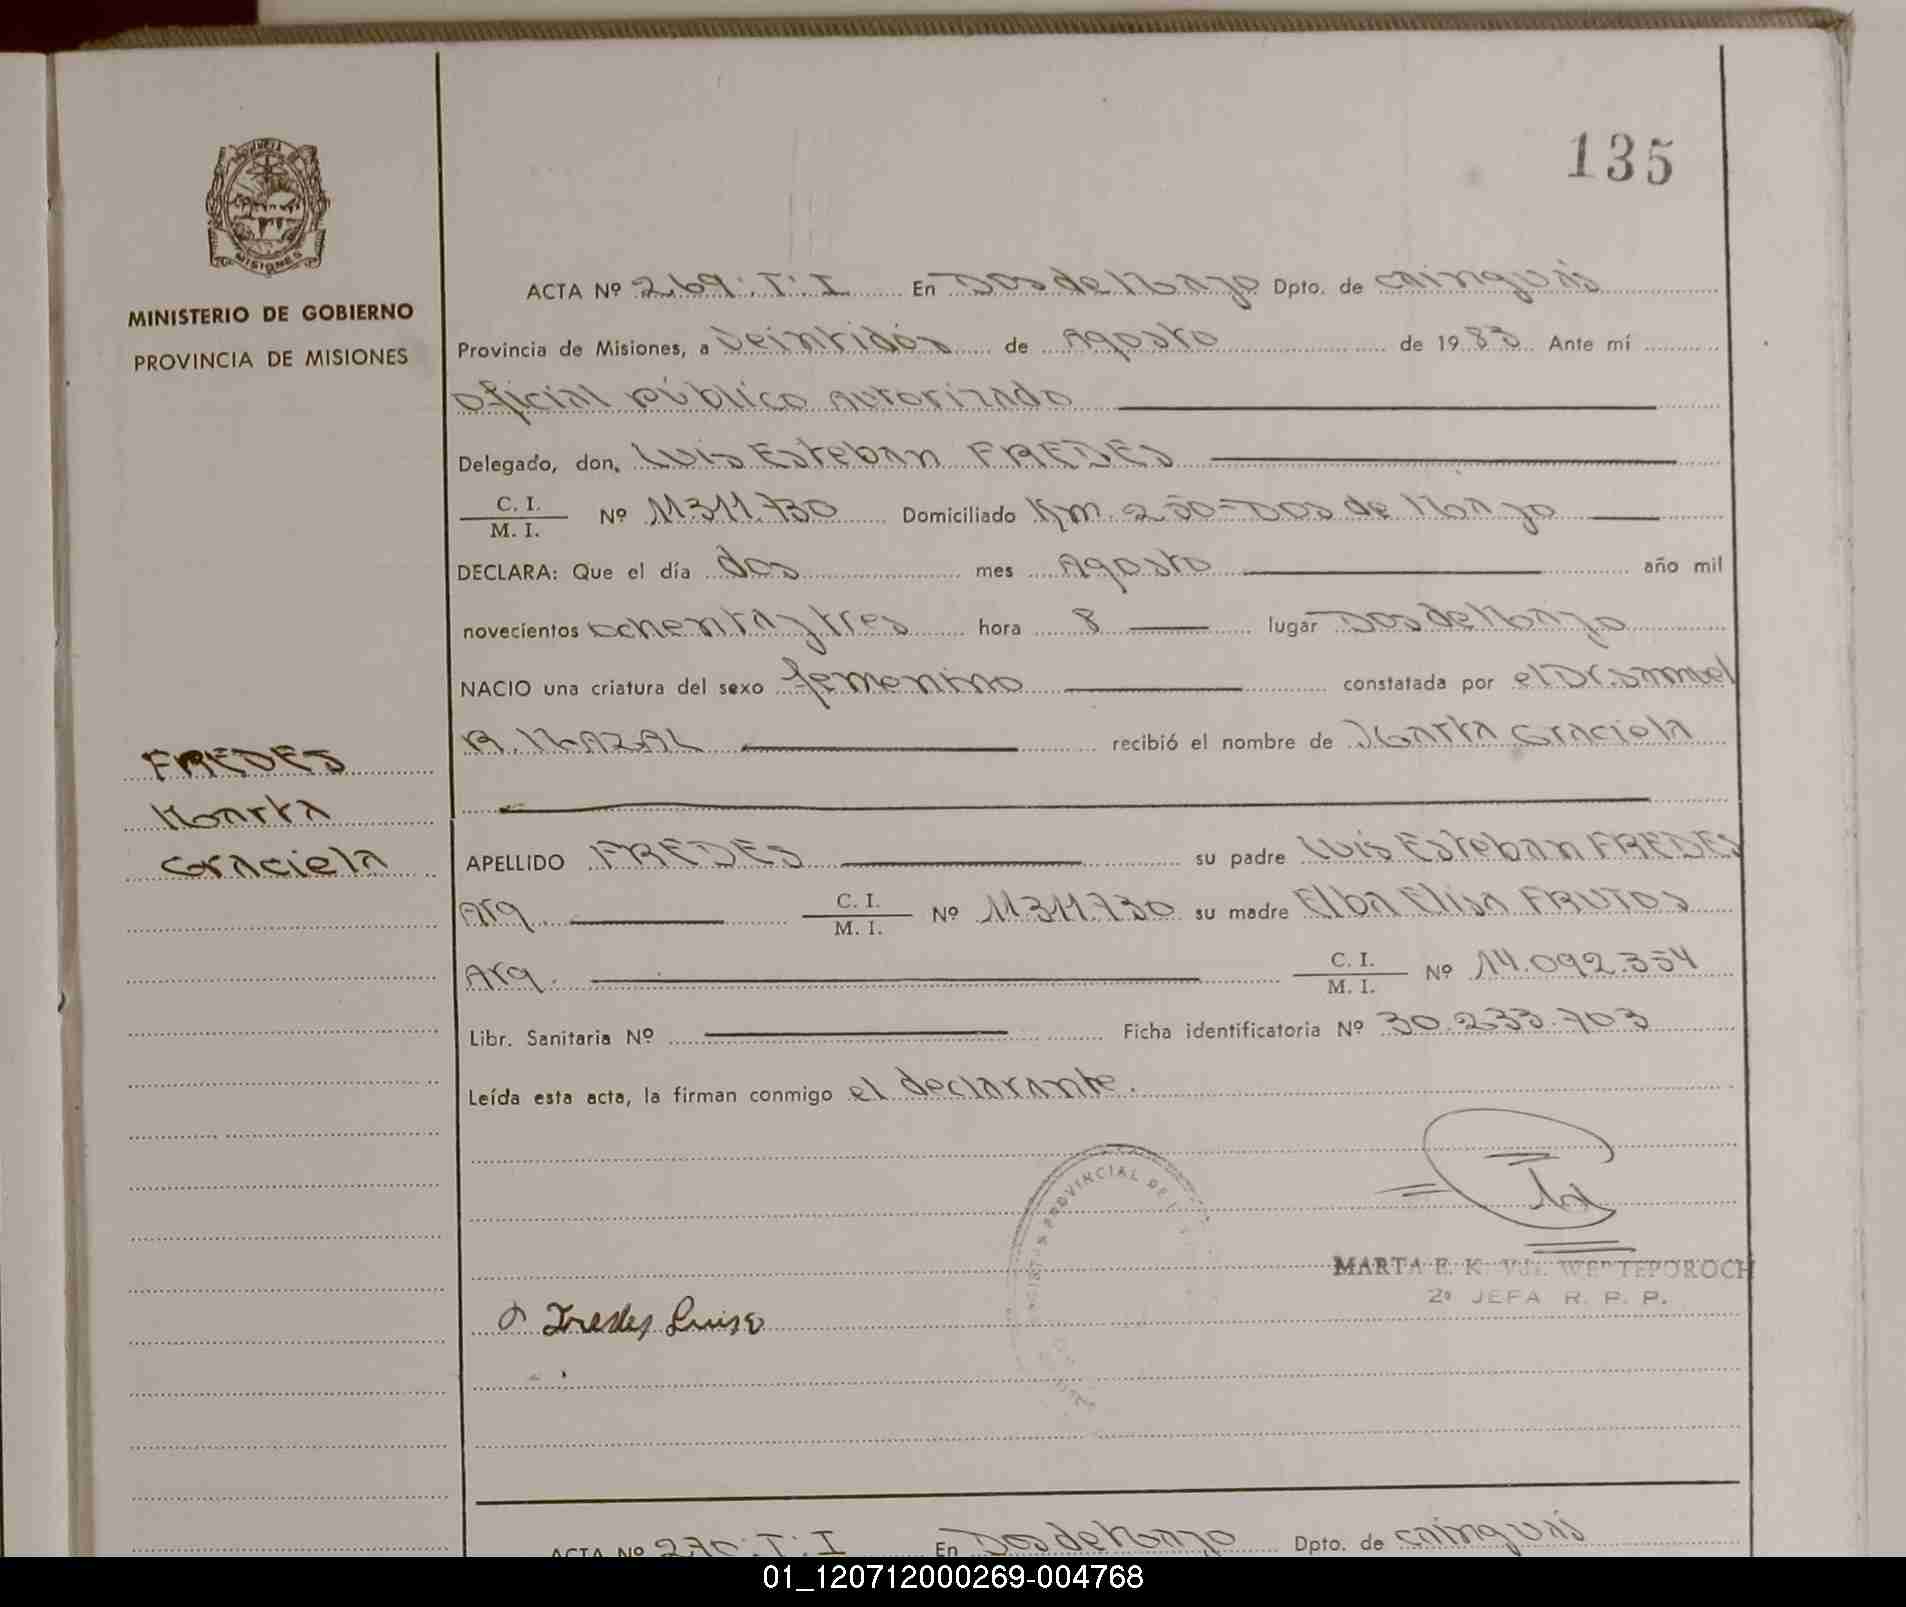 135
MISIONES
MINISTERIO DE GOBIERNO
PROVINCIA DE MISIONES
ACTA Nº 269.T.I En Dos de Mayo Dpto. de Cainguás
Provincia de Misiones, a Veintidós de Agosto de 1983 Ante mí
oficial público autorizado
Delegado, don, Luis Esteban FREDES
C. I.
M. I. Nº 11.311.730 Domiciliado Km. 250-Dos de Mayo
DECLARA: Que el día dos mes Agosto año mil
novecientos ochenta y tres hora 8 lugar Dos de Mayo
NACIO una criatura del sexo femenino constatada por el Dr. Samuel
A. MAZAL recibió el nombre de Marta Graciela
FREDES
Marta
Graciela
APELLIDO FREDES su padre Luis Esteban FREDES
Arg. C. I.
M. I. Nº 11.311.730 su madre Elba Elisa FRUTOS
Arg. C. I.
M. I. Nº 14.092.354
Libr. Sanitaria Nº Ficha identificatoria Nº 30.233.703
Leída esta acta, la firman conmigo el declarante.
PROVINCIAL DE
MARTA E. K. Vda. WERTEPOROCH
2ª JEFA R. P. P.
Fredes Luis E
ACTA Nº 270.T.I En Dos de Mayo Dpto. de Cainguás
01_120712000269-004768